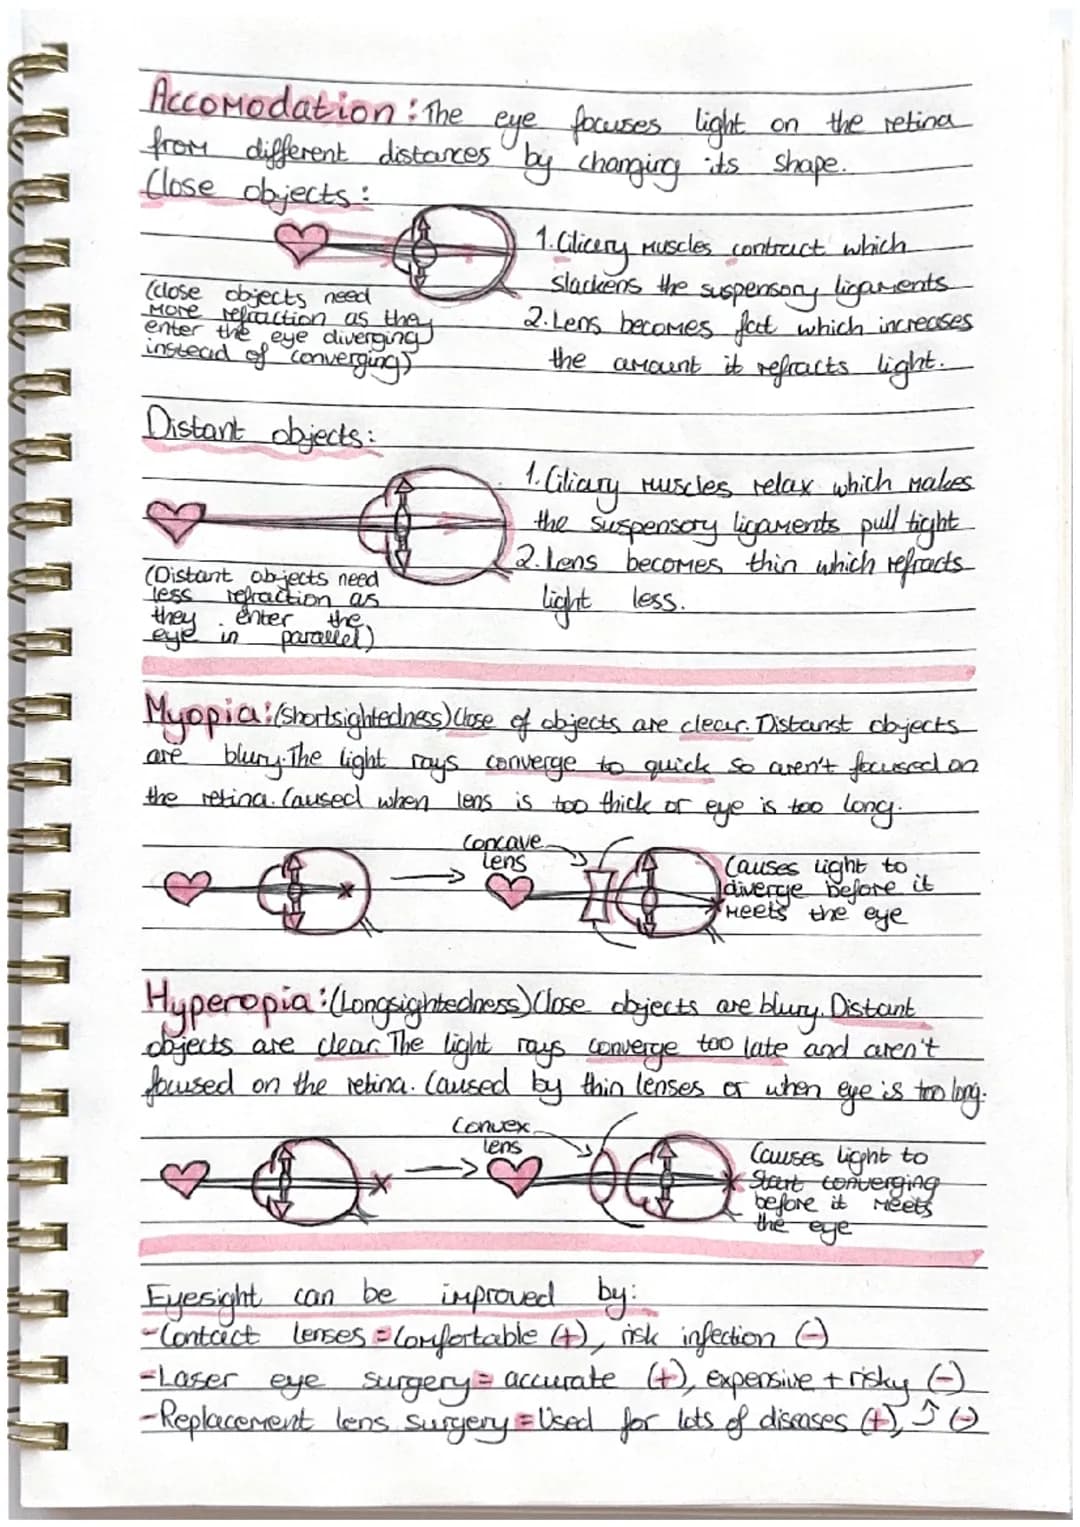 Accomodation: The eye focuses light on the retina
from different distances by changing its shape.
Close objects:
1. Cilicery muscles contract which
slackens the suspensory ligaments
2. Lens becomes fat which increases
the amount it refracts light.
(close objects need
more refraction as they
enter the eye diverging
instead of converging)
Distant objects:
1. Ciliary muscles relax which makes
the suspensory ligaments pull tight
2. Lens becomes thin which refracts
light less.
(Distant objects need
less refraction as
they enter the
eye in parallel)
Myopia: (shortsightedness) Close of objects are clear. Distanst objects
are blury. The light rays converge to quick so aren't focused on
the retina. Caused when lens is too thick or eye is too long.
Concave
lens
Causes light to
diverge before it
meets the eye
Hyperopia: (Longsightedness) Close objects are blury. Distant
objects are clear. The light rays converge too late and aren't
focused on the retina. Caused by thin lenses or when eye is too long.
Convex
lens
Causes light to
start converging
before it meets
the eye
Eyesight can be improved by:
-Contact lenses = Comfortable (+), risk infection (-)
-Laser eye surgery = accurate (+), expensive + risky (-)
-Replacement lens surgery = Used for lots of diseases (+), ↑ (-)